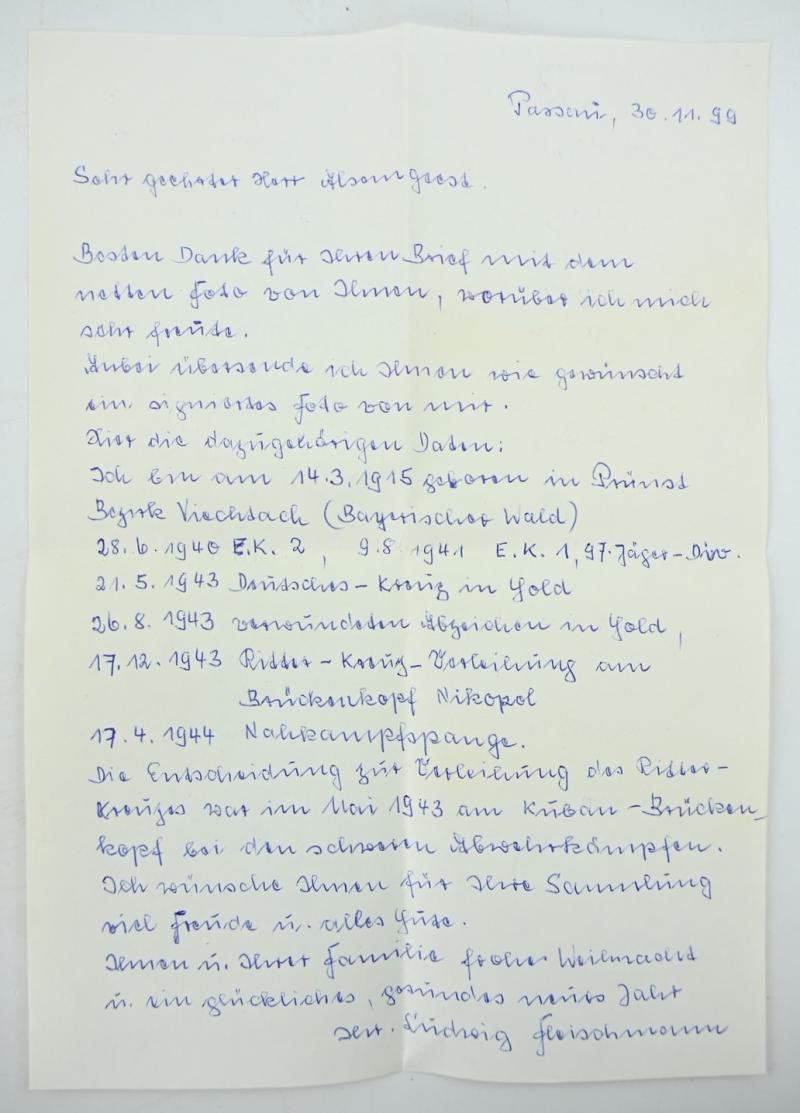 Passau, 30.11.99
Sehr geehrter Herr Alsemgeest.
Besten Dank für Ihren Brief mit dem
netten Foto von Ihnen, worüber ich mich
sehr freute.
Anbei übersende ich Ihnen wie gewünscht
ein signiertes Foto von mir.
Hier die dazugehörigen Daten:
Ich bin am 14.3.1915 geboren in Prünst
Bezirk Viechtach (Bayerischer Wald)
28.6.1940 E.K. 2, 9.8.1941 E.K. 1, 97. Jäger-Div.
21.5.1943 Deutsches-Kreuz in Gold
26.8.1943 verwundeten Abzeichen in Gold,
17.12.1943 Ritter-Kreuz-Verleihung am
Brückenkopf Nikopol
17.4.1944 Nahkampfspange.
Die Entscheidung zur Verleihung des Ritter-
Kreuzes war im Mai 1943 am Kuban-Brücken-
kopf bei den schweren Abwehrkämpfen.
Ich wünsche Ihnen für Ihre Sammlung
viel Freude u. alles Gute.
Ihnen u. Ihrer Familie frohe Weihnacht
u. ein glückliches, gesundes neues Jahr
Ihr. Ludwig Fleischmann